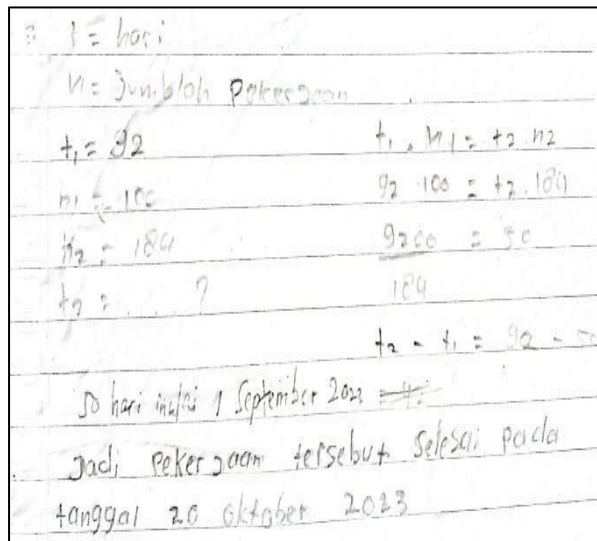 t = hari
n = Jumblah Pekerjaan
t₁ = 92
t₁ . n₁ = t₂ n2
n₁ = 100
92 100 = t₂ . 184
n₂ = 184
9200 =
t₂ = ..... ?
184
t₂ - t₁ = 92 -
50 hari mulai 1 September 2023
Jadi Pekerjaan tersebut selesai pada
tanggal 20 oktober 2023